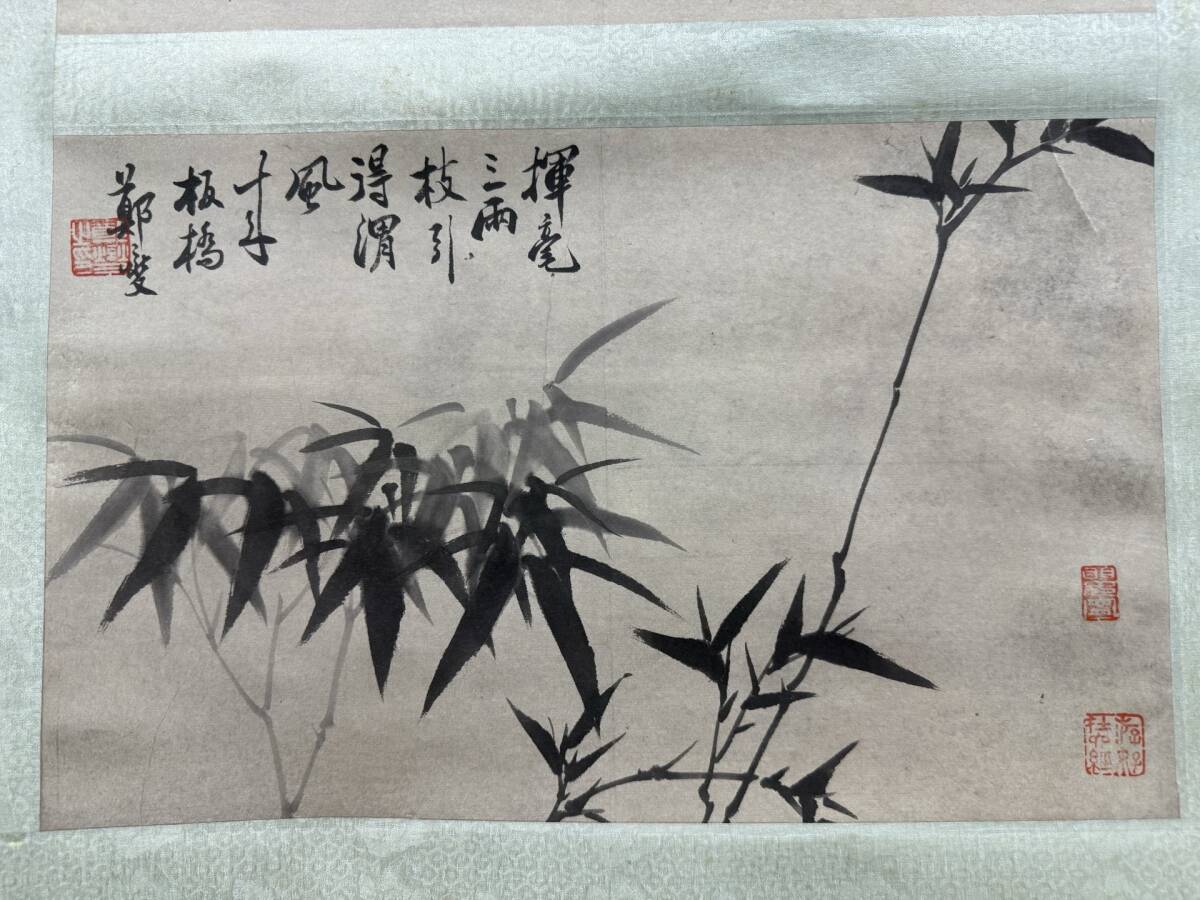 揮毫
三兩
枝引
得渭
風
十年
板橋
鄭燮